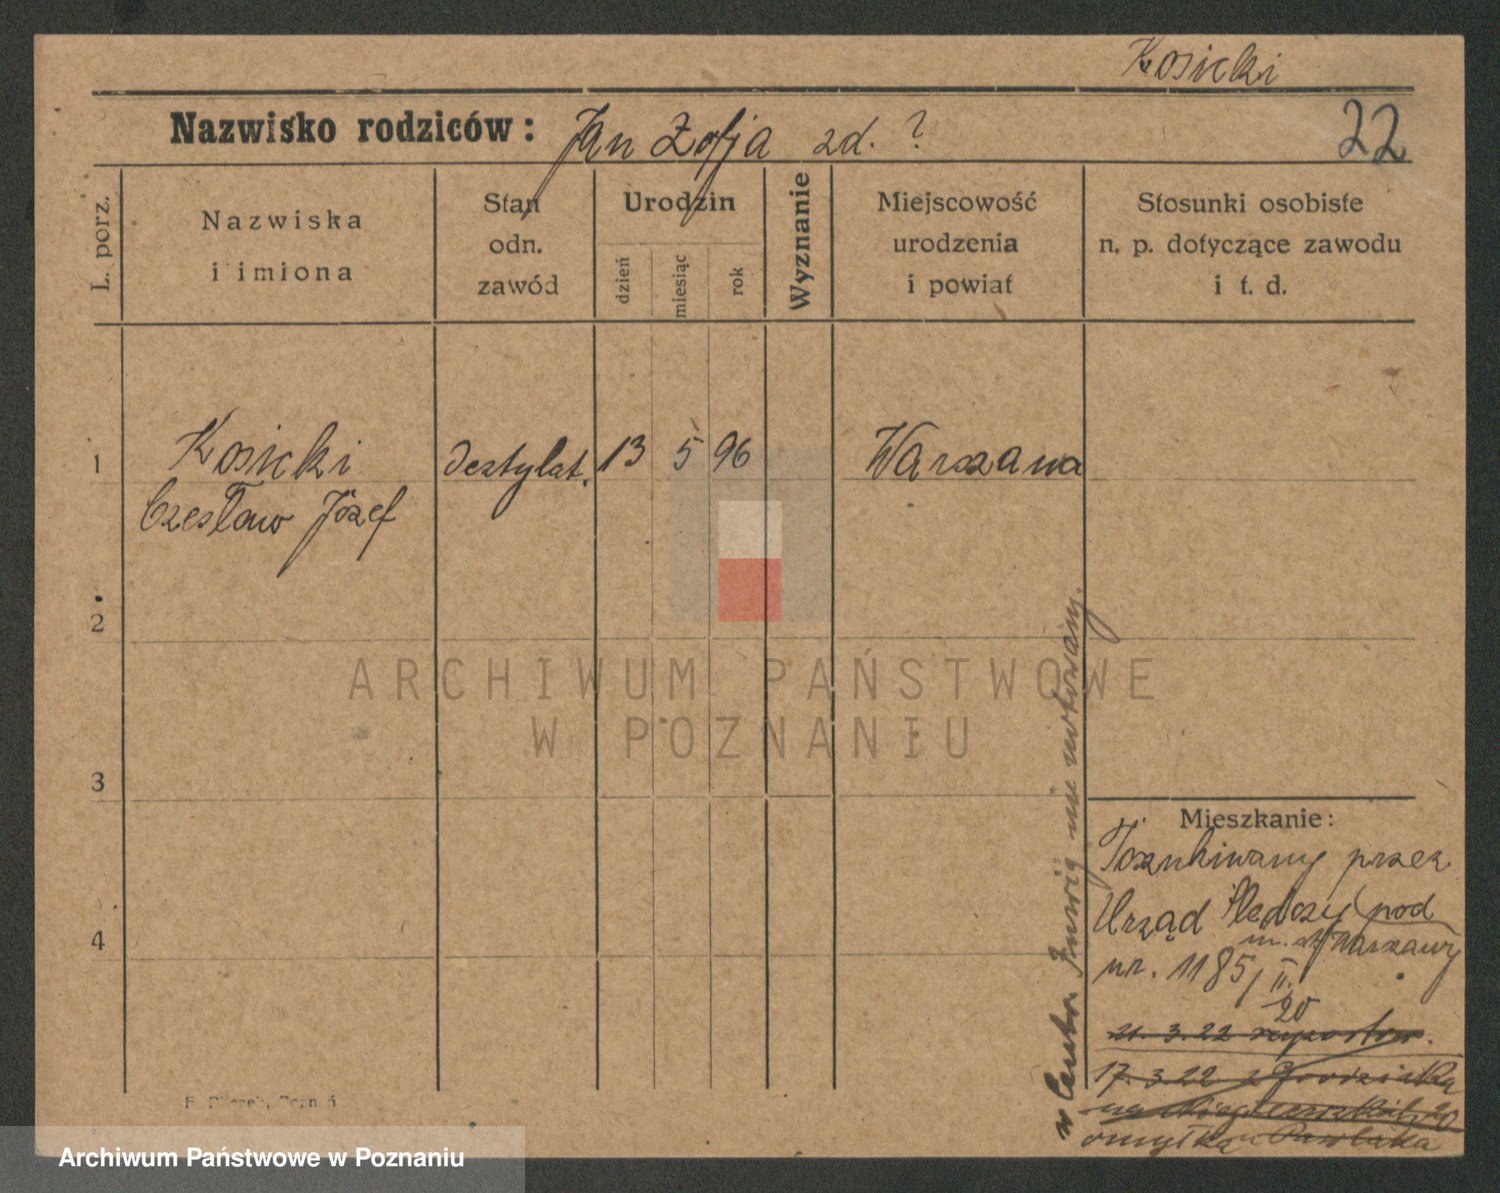 Kosicki
Nazwisko rodziców: Jan Zofja zd. ?
22
L. porz.
Nazwiska
i imiona
Stan
odn.
zawód
Urodzin
dzień
miesiąc
rok
Wyznanie
Miejscowość
urodzenia
i powiat
Stosunki osobiste
n. p. dotyczące zawodu
i t. d.
1
Kosicki
Czesław Józef
destylat.
13
5
96
Warszawa
2
3
4
ARCHIWUM PAŃSTWOWE
W POZNANIU
w Centr. nie notowany.
Mieszkanie:
Poszukiwany przez
Urząd Śledczy pod
m. st. Warszawy
nr. 1185/II.
20
21. 3. 22
17. 3. 22 z Grodziska
20
omyłka Pawlaka
Archiwum Państwowe w Poznaniu